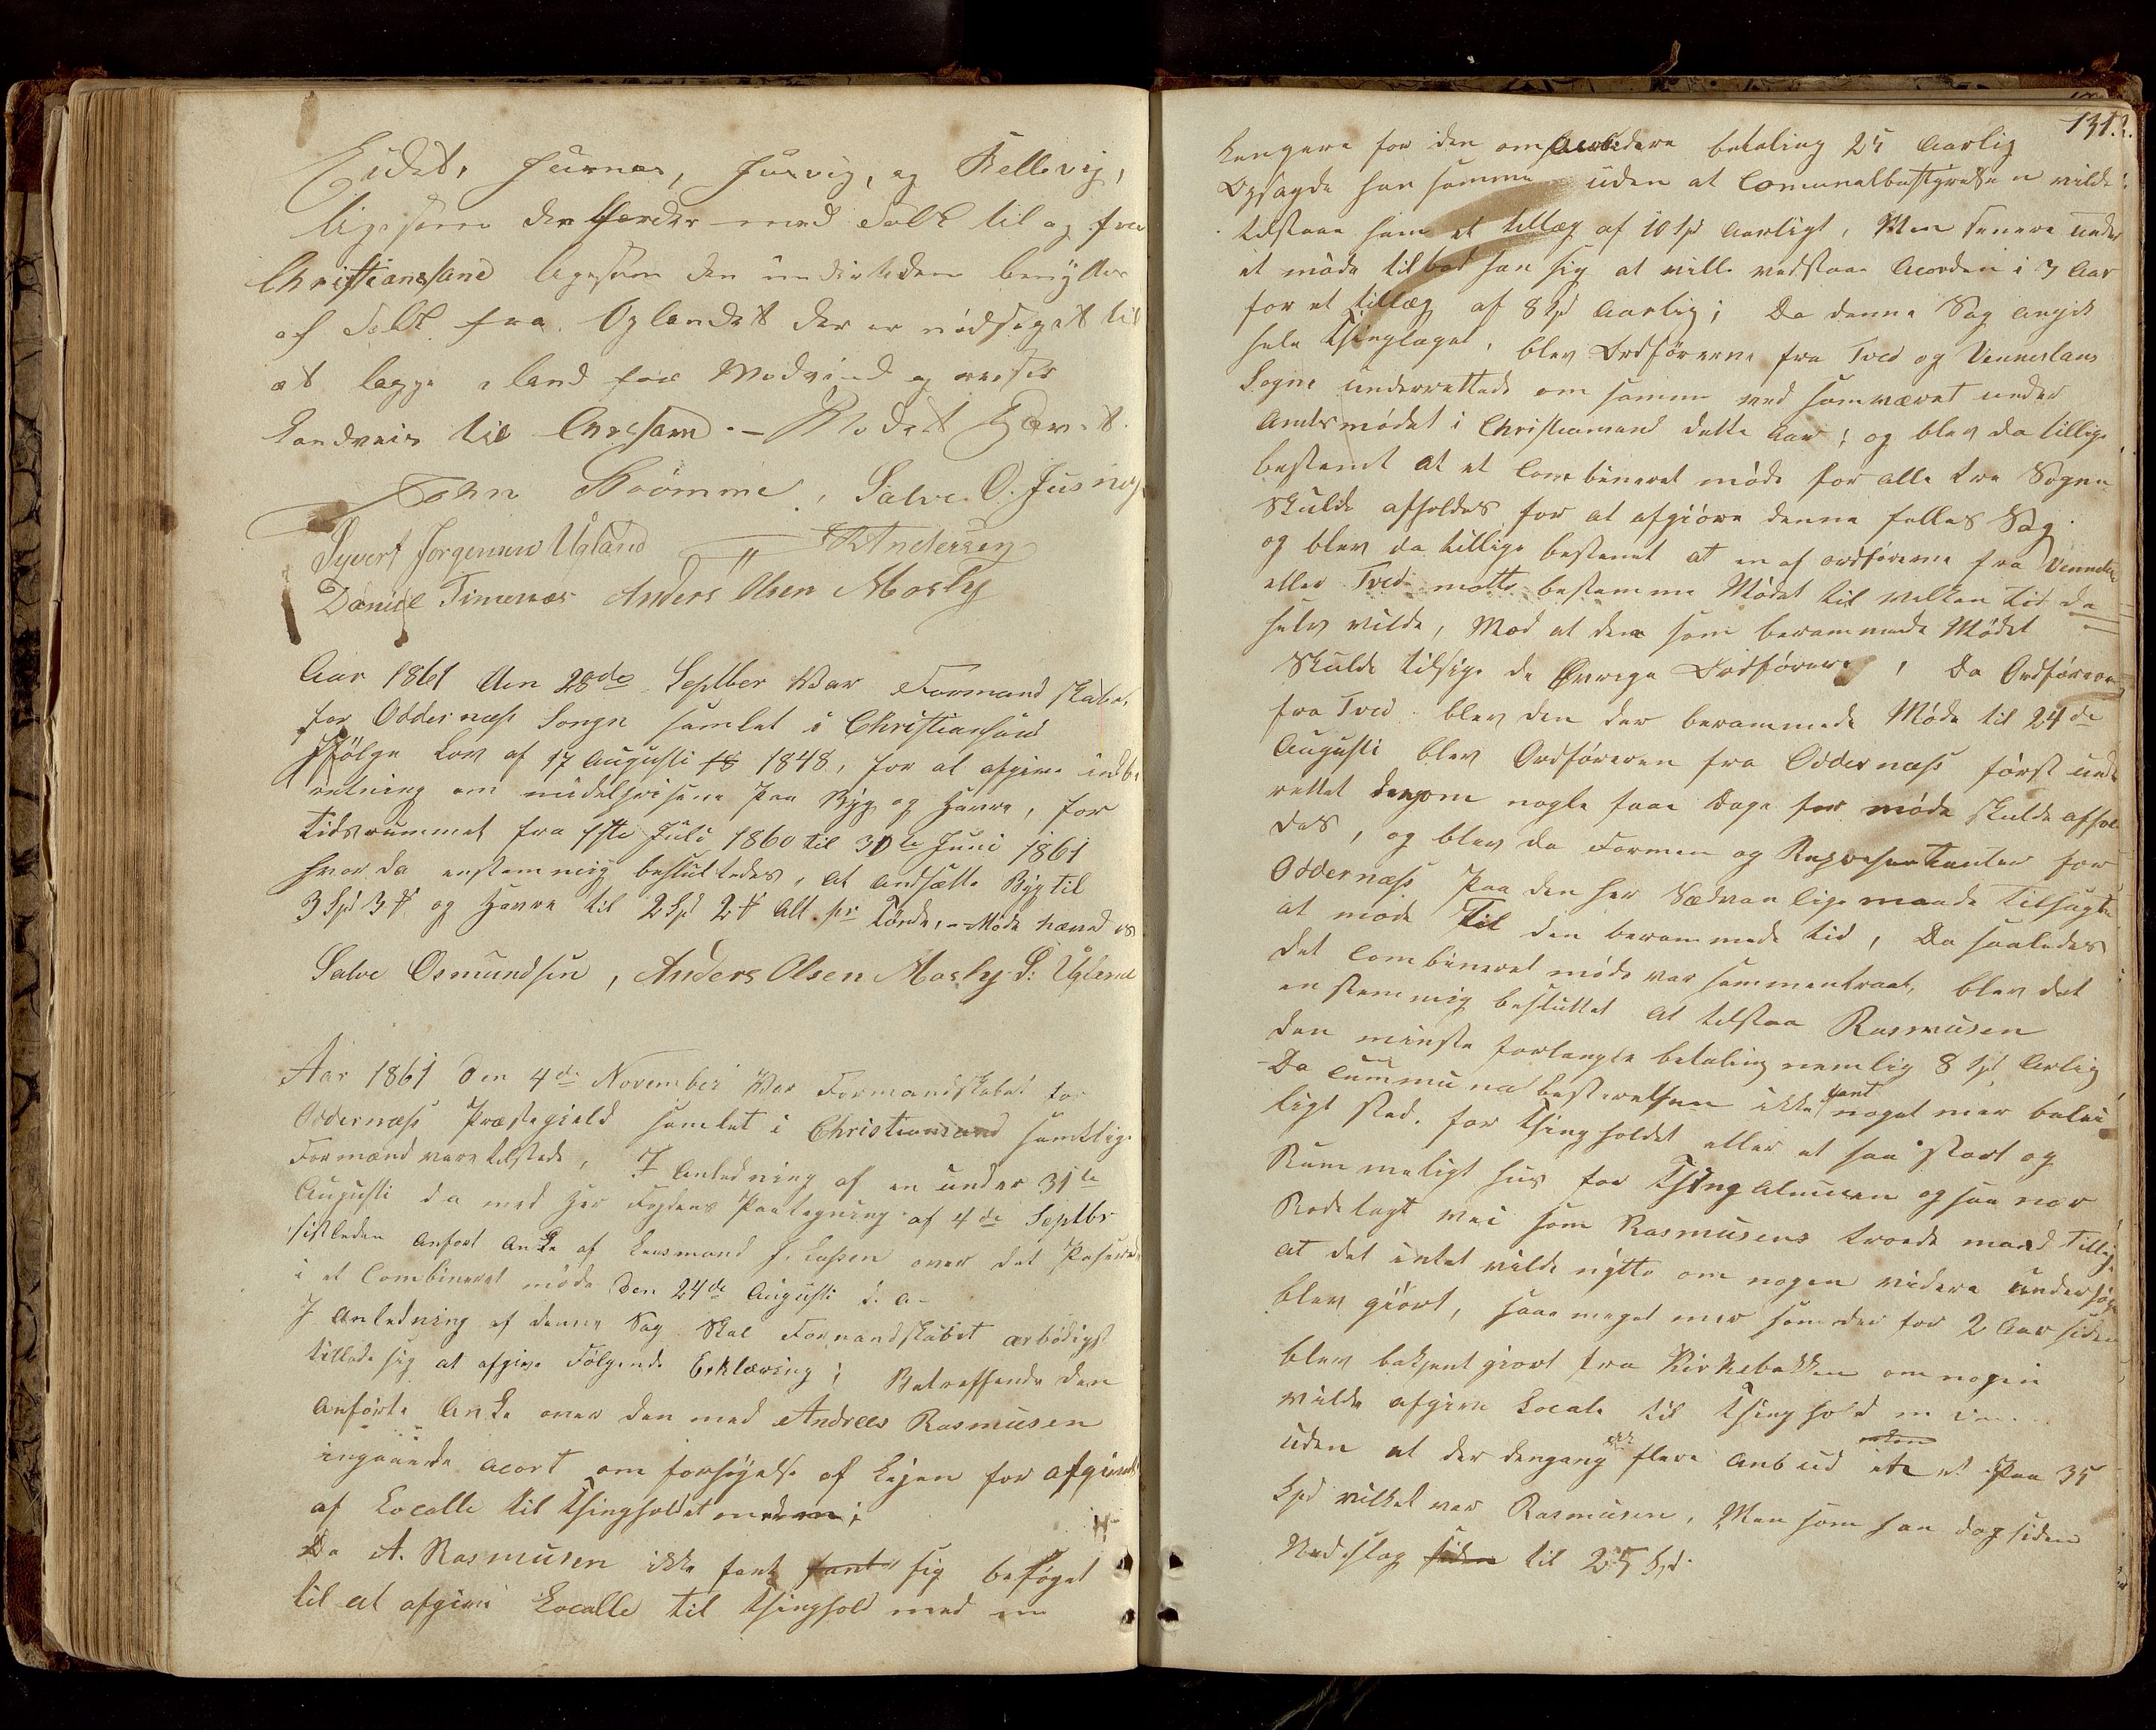 Eidet, Justnes, Justvig, og Kellevig,
ligesom der færdes med Folk til og fra
Christianssand ligesom den undertiden benyttes
af Folk fra Oplandet der er nødsaget til
at lægge i land for Modvind og reiser
Landveis til Chrsand. – Mødet Hævet.
John Strömme, Salve O. Jusnes,
Syvert Jørgensen Ugland H Andersen
Daniel Timenæs Anders Olsen Mosby
Aar 1861 den 28de Septber Var Formandskabet
for Oddernæss Songn samlet i Christiansand
Ifølge Lov af 17 Augusti 18 1848, for at afgive indbe
retning om middelprisene paa Byg og Havre, for
tidsrummet fra 1ste Juli 1860 til 30te Juni 1861
hvor da enstemmig besluttedes, at ansætte Byg til
3 Spd 3 ₰ og Havre til 2 Spd 2 ₰ Alt pr Tønde, – Møde hæved es
Salve Osmundsen, Anders Olsen Mosby S: Ugland
Aar 1861 den 4de November Var Formandskabet for
Oddernæss Præstegield samlet i Christiansand samtlige
Formænd vare tilstede, I Anledning af en under 31te
Augusti da med Her Fogdens Paategning af 4de Septbr
sistleden anført Anke af Lensmand J. Laßen over det Paserede
i et Combineret møde den 24de Augusti d. A–
I Anledning af denne Sag Skal Formandskabet ærbødigst
tillade sig at afgive Følgende Erklæring; Betræffende den
anførte Anke over den med Andreas Rasmusen
ingaaede acort om forhøyelse af Lejen for afgivelse
af Localle til Thingholdet
Da A. Rasmusen ikke fant fant sig beføget
til at afgive Localle til Thinghold med en
131.2.
Længere for den om Acorderte betaling 25 Aarlig
Opsagde han samme uden at Comunalbestyrelsen vilde
tilstaae ham et tillæg af 10 Spd Aarligt, Men senere under
et møde tilbød han sig at ville vedstaae Acorden i 3 Aar
for et tillæg af 8 Spd Aarlig; Da denne Sag angik
hele Thinglaget, blev Ordførerne fra Tved og Venneslans
Sogne underrettede om samme ved samværet under
Amtsmødet i Christiansand dette Aar; og blev da tillige
bestemt at et Combineret møde for alle tre Sogne
Skulde afholdes for at afgiøre denne felles Sag.
og blev da tillige bestemt at en af ordførerne fra Vennesla
eller Tved motte bestemme Mødet til vilken tid de
selv vilde, Mod at den som berammede Mødet
Skulde tilsige de Øvrige Ordførere, Da Ordføreren
fra Tved blev den der berammede Møde til 24de
Augusti blev Ordføreren fra Oddernæss først under
rettet derom nogle faae Dage før møde skulde afhol
des, og blev da Formen og Represententer for
Oddernæss Paa den her Sædvanlige maade tilsagte
at møde Til den berammede tid, Da saaledes
det Combineret møde var sammentraat, blev det
enstemmig besluttet at tilstaa Rasmusen
den minste forlangte betaling nemlig 8 Spd Arlig
Da Cummunalbesterelsen ikke fant noget mer belei
ligt sted for Thingholdet eller et saa stort og
Rummeligt hus for Thing almuen og saa nær
Rodelagt vei som Rasmusens troede mand tillige
at det intet vilde nytte om nogen videre undersøge
blev giort, saae meget mer som der for 2 Aar siden
blev bekjentgiort fra Kirkebakken om nogen
vilde afgive Locale til Thinghold
uden at der dengang flere Anbud Paa 35
Spd vilket var Rasmusen, Men som han dog siden
Nedslog siden til 25 Spd